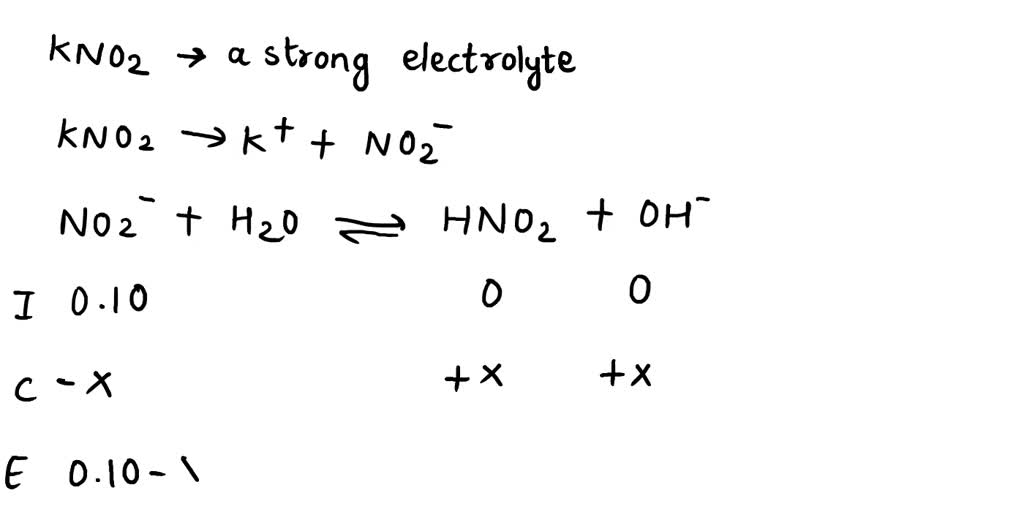 KNO2 → a strong electrolyte
KNO2 → K+ + NO2-
NO2- + H2O ⇌ HNO2 + OH-
I 0.10 0 0
C -x +x +x
E 0.10 - \